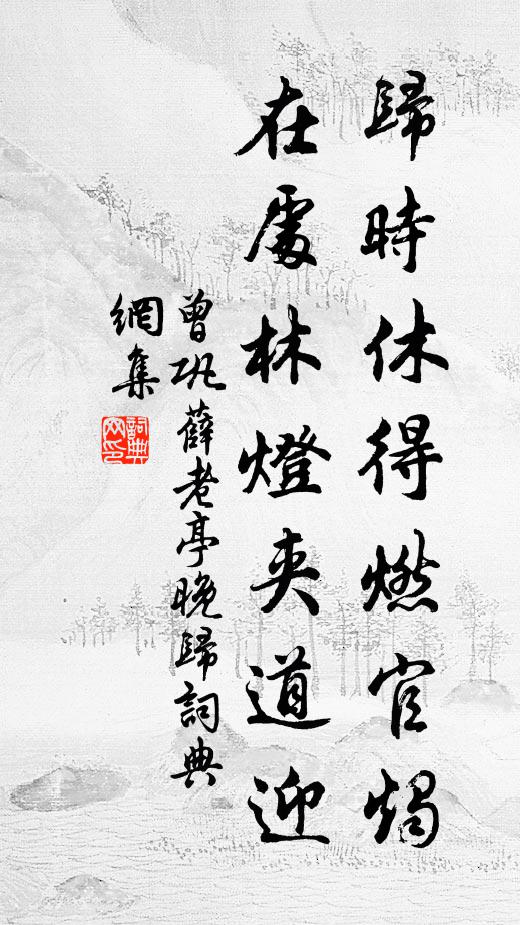 歸時休得燃官燭
在處林燈夾道迎
曾巩薛老亭晚歸詞典
網集
詞典
网印